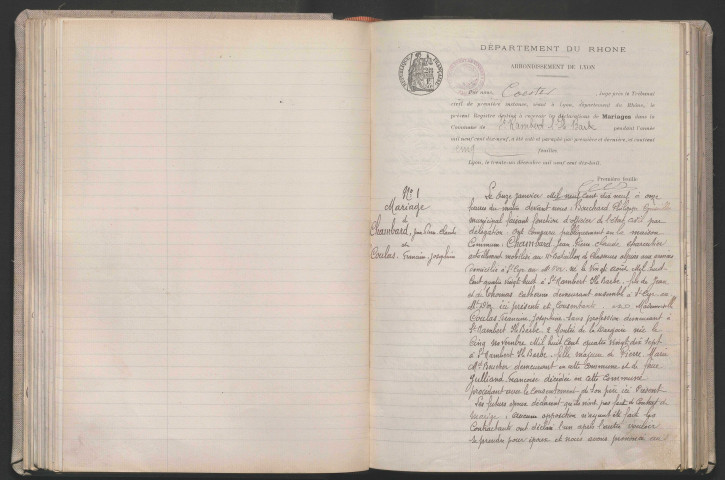 DÉPARTEMENT DU RHONE
ARRONDISSEMENT DE LYON
Par nous, juge près le Tribunal
civil de première instance, séant à Lyon, département du Rhône, le
présent Registre destiné à recevoir les déclarations de Mariages dans la
Commune de St Rambert l'Ile Barbe pendant l'année
mil neuf cent dix-neuf, a été coté et paraphé par première et dernière, et contient
cinq feuilles
Lyon, le trente-un décembre mil neuf cent dix-huit.
Première feuille
No 1
Mariage
de
Chambard, Jean Pierre Claude
et
Coulas, Francine Josephine
Le onze janvier Mil neuf Cent dix neuf à onze
heures du matin devant nous, Bouchard Philippe Conseiller
municipal faisant fonction d'officier de l'état civil par
délégation, ont Comparu publiquement en la maison
Commune: Chambard Jean Pierre Claude charcutier
actuellement mobilisé au Bataillon de Chasseurs alpins aux armées
domicilié à St Cyr au Mt D'Or né le Vingt août Mil huit
Cent quatre Vingt huit à St Rambert Ile Barbe, fils de Jean
et de Thomas Catherine demeurant ensemble à St Cyr au
Mt D'Or ici présents et Consentants. et Mademoiselle
Coulas Francine Josephine Sans profession demeurant à
St Rambert Ile Barbe, 2 Montée de la née le
Cinq novembre Mil huit Cent quatre Vingt dix sept
à St Rambert Ile Barbe, fille majeure de Pierre Marie
demeurant en cette Commune et de feue
Julliand Françoise décédée en cette Commune
procédant avec le Consentement de son père ici Présent.
Les futurs époux déclarent qu'ils n'ont pas fait de Contrat de
mariage. Aucune opposition n'ayant été faite les
Contractants ont déclaré l'un après l'autre vouloir
se prendre pour époux et nous avons prononcé au